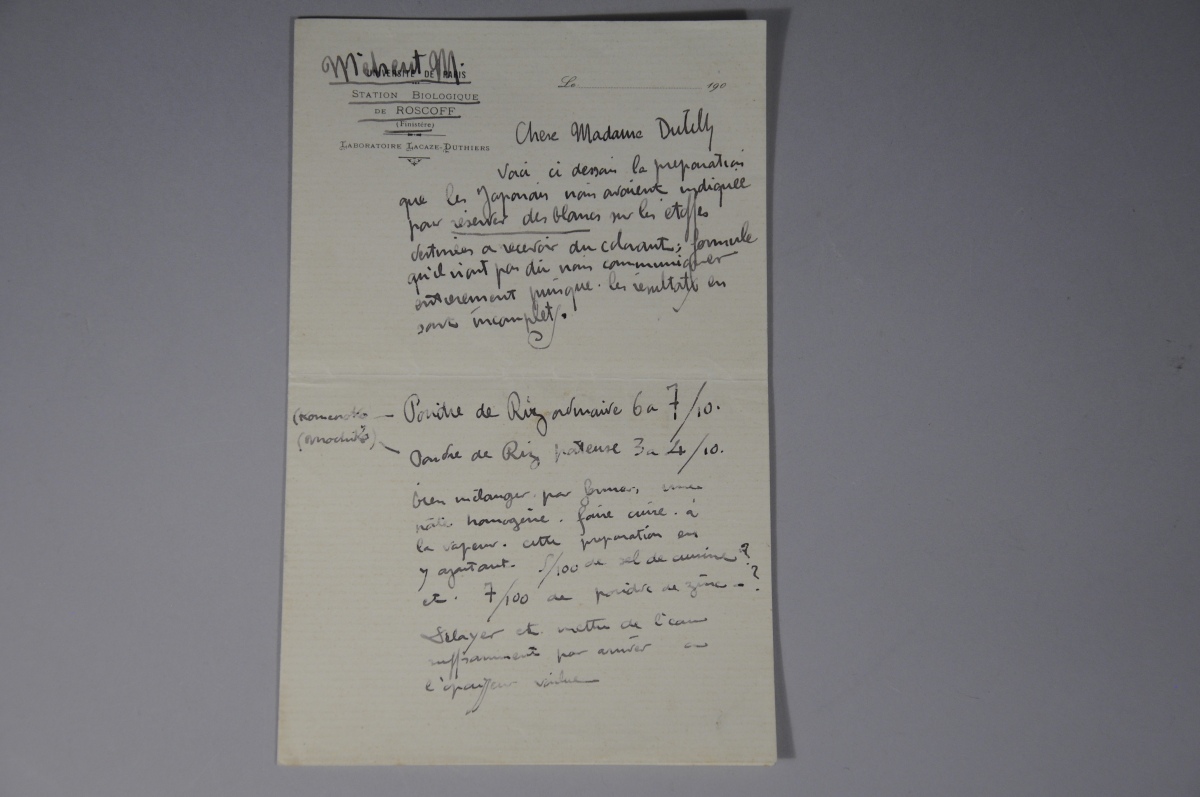 Méheut M.
UNIVERSITÉ DE PARIS
STATION BIOLOGIQUE
DE ROSCOFF
(Finistère)
LABORATOIRE LACAZE-DUTHIERS
Le 190
Chere Madame Dutilly
Voici ci dessous la preparation
que les Japonais nous avaient indiquée
pour réserver des blancs sur les etoffes
destinées a recevoir du colorant; formule
qu'il n'ont pas dû nous communiquer
entierement puisque les résultats en
sont incomplets.
Poudre de Riz ordinaire 6 a 7/10.
Poudre de Riz pateuse 3 a 4/10.
bien mélanger par former, une
pâte homogène. faire cuire. à
la vapeur. cette preparation en
y ajoutant. 5/100 de sel de cuisine?
et. 7/100 de poudre de zinc -?
Delayer et mettre de l'eau
suffisamment par arriver a
l'épaisseur voulue